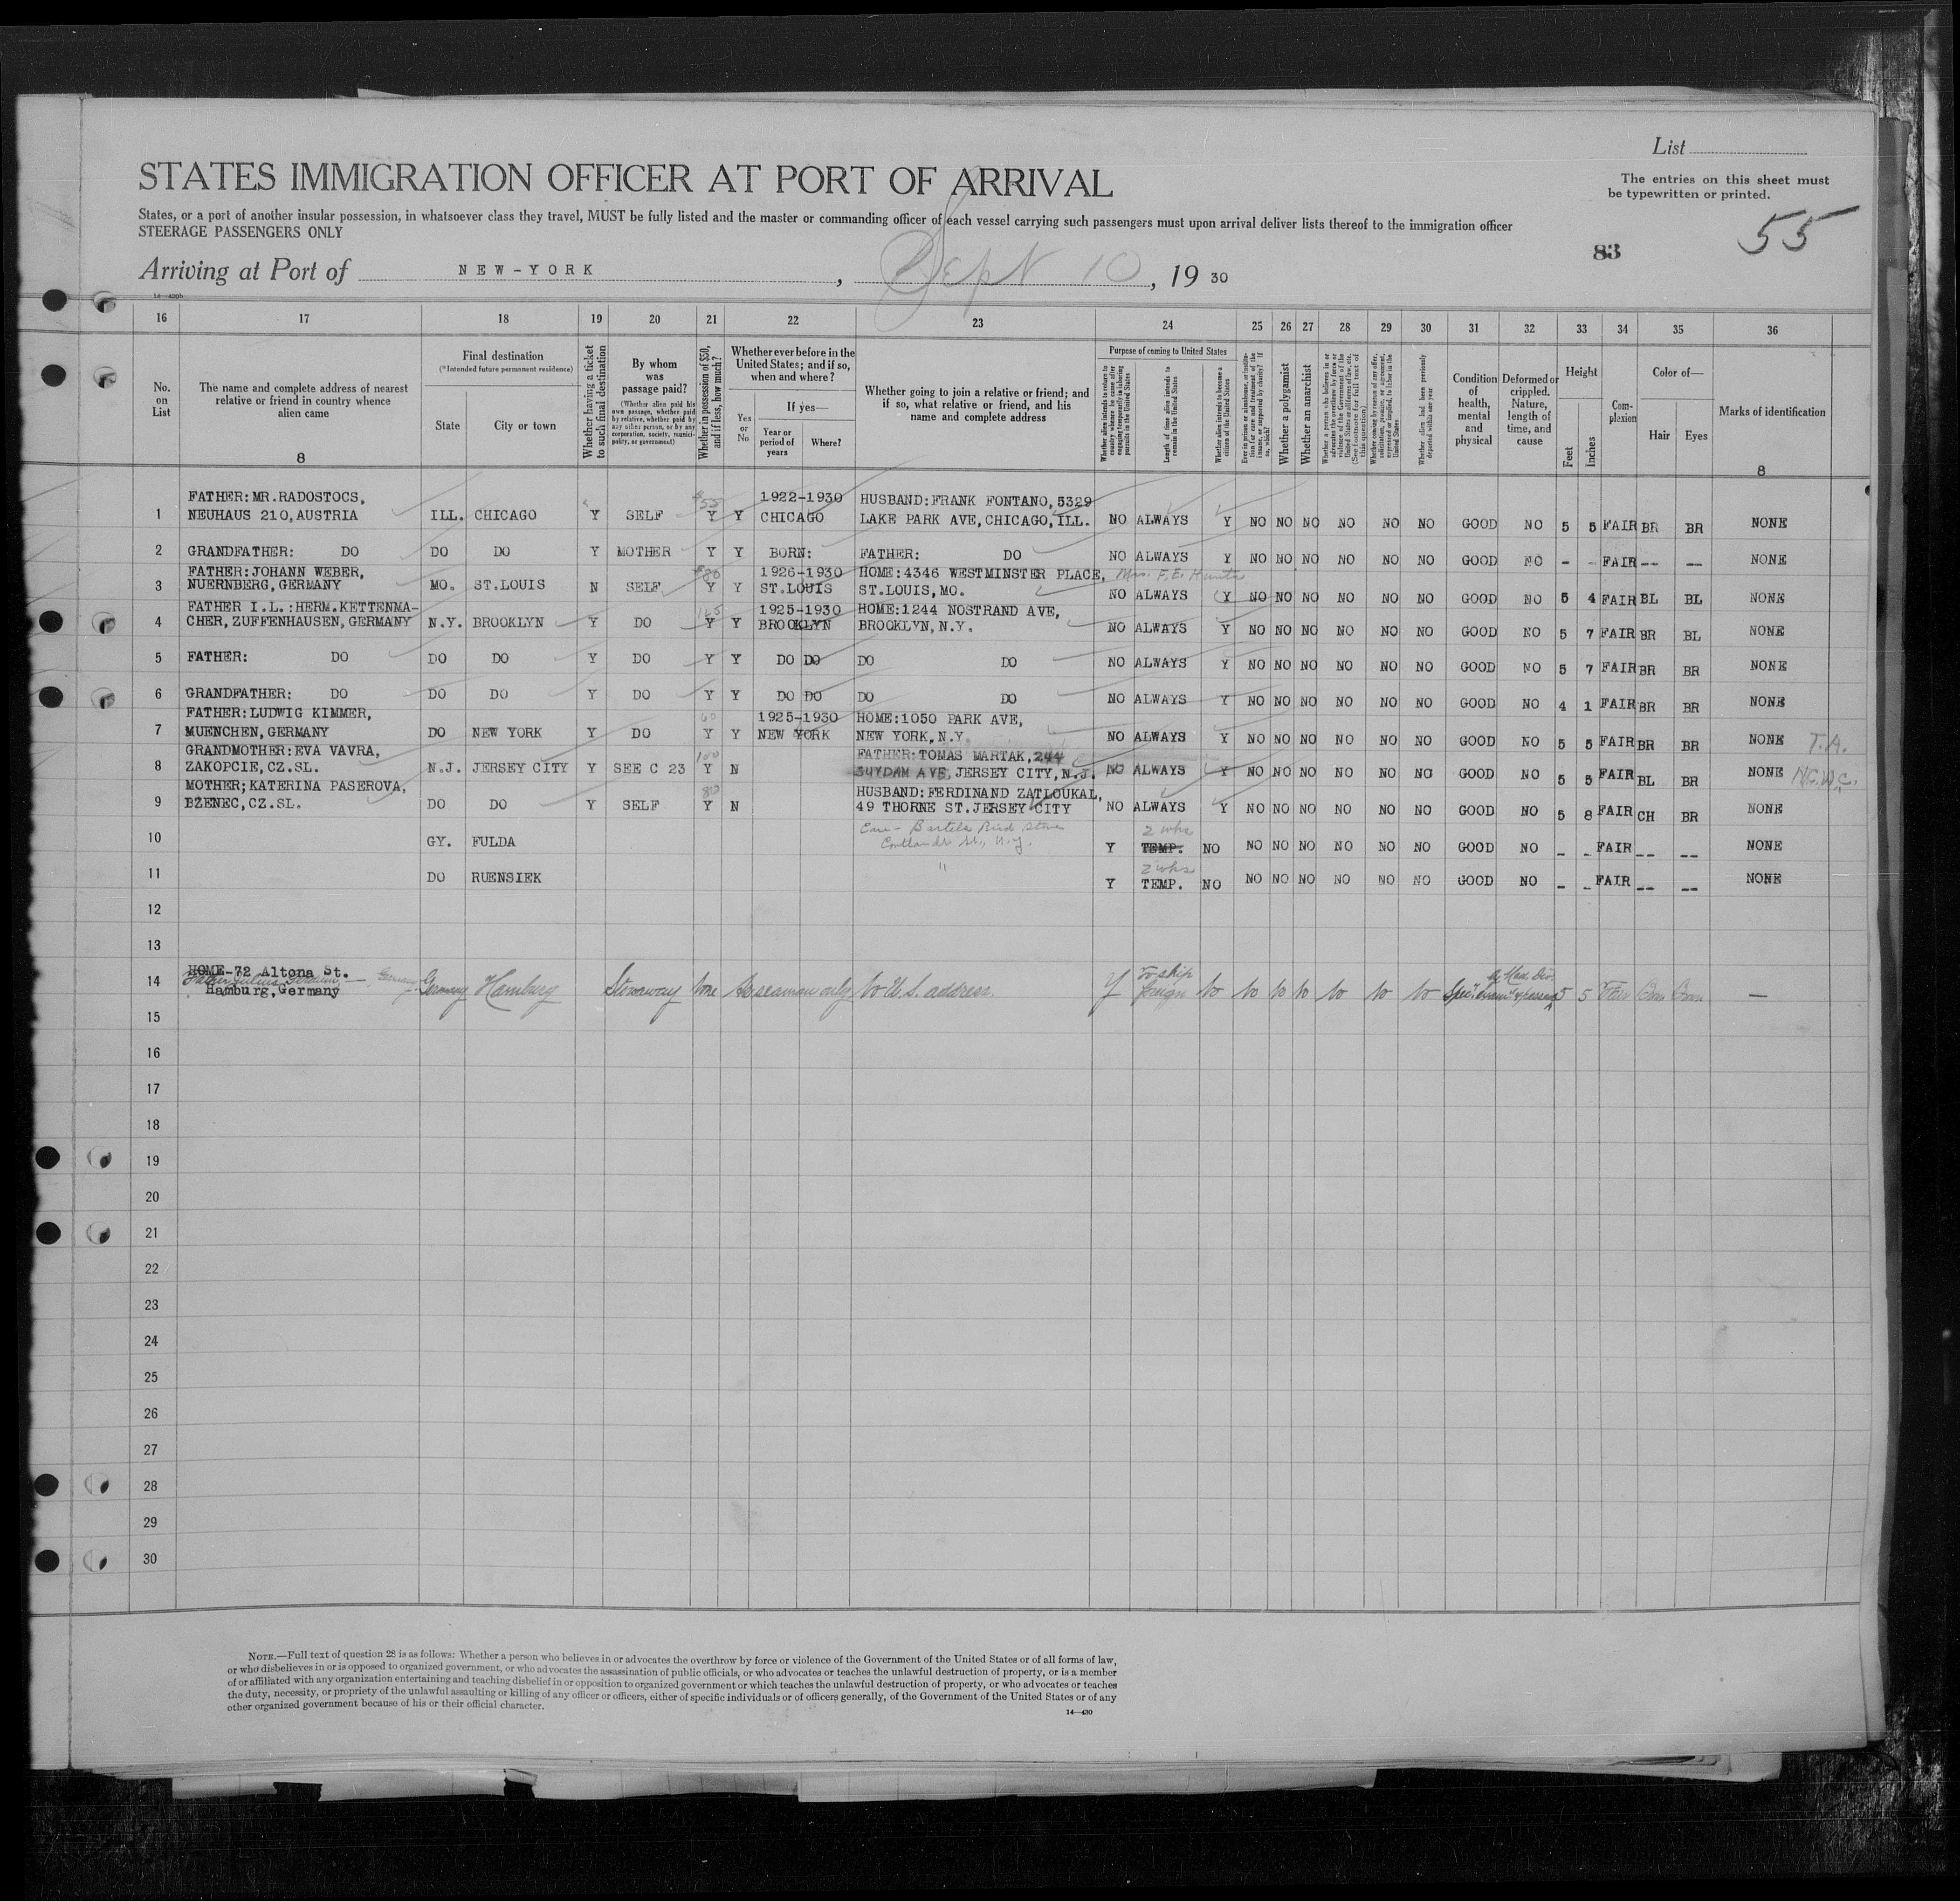 List
The entries on this sheet must
be typewritten or printed.
STATES IMMIGRATION OFFICER AT PORT OF ARRIVAL
States, or a port of another insular possession, in whatsoever class they travel, MUST be fully listed and the master or commanding officer of each vessel carrying such passengers must upon arrival deliver lists thereof to the immigration officer
STEERAGE PASSENGERS ONLY
83 55
Arriving at Port of NEW-YORK, Sept 10, 19 30
14—430h
16 17 18 19 20 21 22 23 24 25 26 27 28 29 30 31 32 33 34 35 36
No. on List
The name and complete address of nearest relative or friend in country whence alien came
8
Final destination
(*Intended future permanent residence)
State City or town
Whether having a ticket to such final destination
By whom was passage paid?
(Whether alien paid his own passage, whether paid by relative, whether paid by any other person, or by any corporation, society, municipality, or government)
Whether in possession of $50, and if less, how much?
Whether ever before in the United States; and if so, when and where?
Yes or No
If yes—
Year or period of years
Where?
Whether going to join a relative or friend; and if so, what relative or friend, and his name and complete address
Purpose of coming to United States
Whether alien intends to return to country whence he came after engaging temporarily in laboring pursuits in the United States
Length of time alien intends to remain in the United States
Whether alien intends to become a citizen of the United States
Whether a polygamist
Whether an anarchist
Whether alien had been previously deported within one year
Condition of health, mental and physical
Deformed or crippled. Nature, length of time, and cause
Height
Feet Inches
Complexion
Color of—
Hair Eyes
Marks of identification
8
FATHER:MR.RADOSTOCS, $55 1922-1930 HUSBAND:FRANK FONTANO,5329
1 NEUHAUS 210,AUSTRIA ILL. CHICAGO Y SELF Y Y CHICAGO LAKE PARK AVE,CHICAGO,ILL. NO ALWAYS Y NO NO NO NO NO NO GOOD NO 5 5 FAIR BR BR NONE
2 GRANDFATHER: DO DO DO Y MOTHER Y Y BORN: FATHER: DO NO ALWAYS Y NO NO NO NO NO NO GOOD NO - - FAIR -- -- NONE
FATHER:JOHANN WEBER, $80 1926-1930 HOME:4346 WESTMINSTER PLACE, Mrs. F.E. Hunter
3 NUERNBERG,GERMANY MO. ST.LOUIS N SELF Y Y ST.LOUIS ST.LOUIS,MO. NO ALWAYS Y NO NO NO NO NO NO GOOD NO 5 4 FAIR BL BL NONE
FATHER I.L.:HERM.KETTENMA- 1925-1930 HOME:1244 NOSTRAND AVE,
4 CHER,ZUFFENHAUSEN,GERMANY N.Y. BROOKLYN Y DO Y Y BROOKLYN BROOKLYN,N.Y. NO ALWAYS Y NO NO NO NO NO NO GOOD NO 5 7 FAIR BR BL NONE
5 FATHER: DO DO DO Y DO Y Y DO DO DO DO NO ALWAYS Y NO NO NO NO NO NO GOOD NO 5 7 FAIR BR BR NONE
6 GRANDFATHER: DO DO DO Y DO Y Y DO DO DO DO NO ALWAYS Y NO NO NO NO NO NO GOOD NO 4 1 FAIR BR BR NONE
FATHER:LUDWIG KIMMER, 60 1925-1930 HOME:1050 PARK AVE,
7 MUENCHEN,GERMANY DO NEW YORK Y DO Y Y NEW YORK NEW YORK,N.Y NO ALWAYS Y NO NO NO NO NO NO GOOD NO 5 5 FAIR BR BR NONE T.A.
GRANDMOTHER:EVA VAVRA, 100 FATHER:TOMAS MARTAK,244
8 ZAKOPCIE,CZ.SL. N.J. JERSEY CITY Y SEE C 23 Y N SUYDAM AVE,JERSEY CITY,N.J. NO ALWAYS Y NO NO NO NO NO NO GOOD NO 5 5 FAIR BL BR NONE
MOTHER;KATERINA PASEROVA, 80 HUSBAND:FERDINAND ZATLOUKAL,
9 BZENEC,CZ.SL. DO DO Y SELF Y N 49 THORNE ST.JERSEY CITY NO ALWAYS Y NO NO NO NO NO NO GOOD NO 5 8 FAIR CH BR NONE
Care - Bartels Bird Store 2 wks
10 GY. FULDA Cortlandt St., N.Y. Y TEMP. NO NO NO NO NO NO NO GOOD NO - - FAIR -- -- NONE
2 wks
11 DO RUENSIEK " Y TEMP. NO NO NO NO NO NO NO GOOD NO - - FAIR -- -- NONE
12
13
HOME-72 Altona St.
14 Hamburg,Germany Germany Hamburg Stowaway none As seaman only No U.S. address. Y To ship foreign No No No No No No No 5 5 Fair —
15
16
17
18
19
20
21
22
23
24
25
26
27
28
29
30
NOTE.—Full text of question 28 is as follows: Whether a person who believes in or advocates the overthrow by force or violence of the Government of the United States or of all forms of law,
or who disbelieves in or is opposed to organized government, or who advocates the assassination of public officials, or who advocates or teaches the unlawful destruction of property, or is a member
of or affiliated with any organization entertaining and teaching disbelief in or opposition to organized government or which teaches the unlawful destruction of property, or who advocates or teaches
the duty, necessity, or propriety of the unlawful assaulting or killing of any officer or officers, either of specific individuals or of officers generally, of the Government of the United States or of any
other organized government because of his or their official character.
14—430